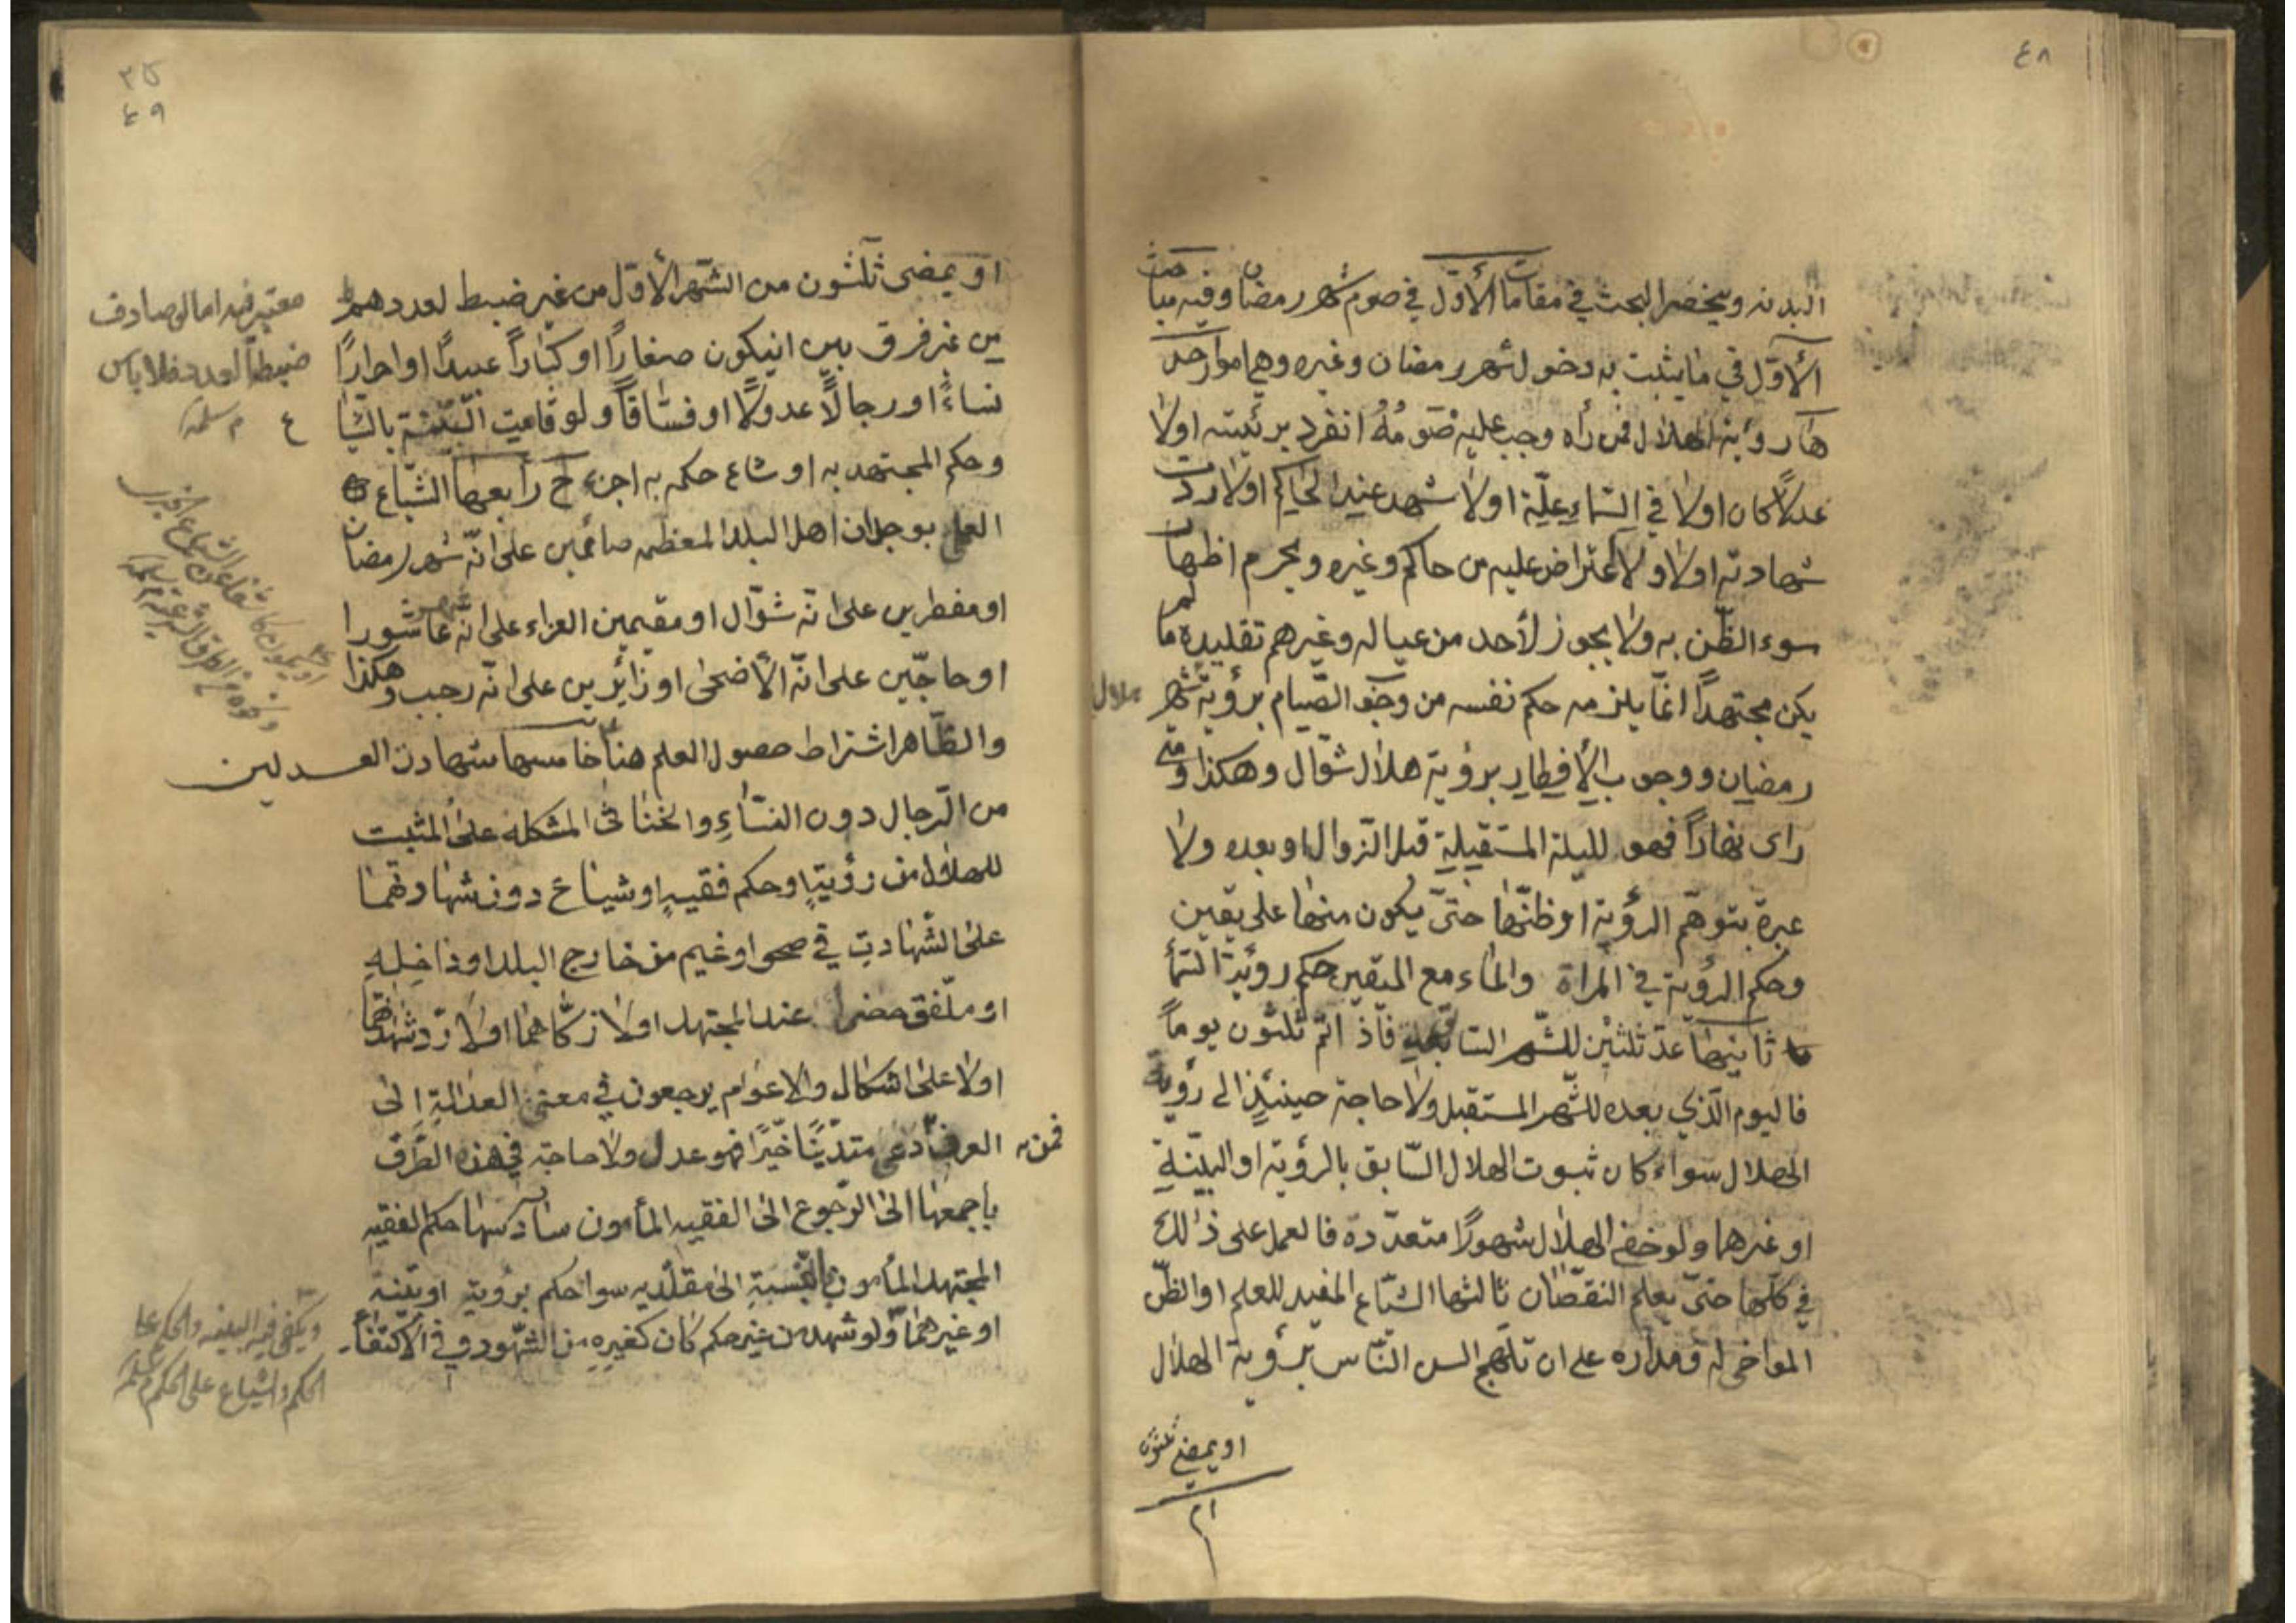 ٤٨
البدنه وينحصر البحث في مقامات الأوّل في صوم شهر رمضان وفيه مباحث
الأوّل في ما يثبت به دخول شهر رمضان وغيره وهي امور احد
ها رؤية الهلال فمن رأه وجب عليه صَومُهُ انفرد برئيته اولا
عدلاً كان اولا في السّماءِ علّة اولا شهد عند الحاكم اولا ردت
شهادته اولا ولا اعتراض عليه من حاكم وغيره ويحرم اظهار
سوء الظّن به ولا يجوز لأحد من عياله وغيرهم تقليده ما لم
يكن مجتهداً انّما يلزمه حكم نفسه من وجوب الصّيام برؤية شهر
هلال
رمضان ووجوب الأفطار برؤية هلال شوّال وهكذا ومتى
راى نهاراً فهو لليلة المستقبلة قبل الزّوال او بعده ولا
عبرة بتوهّم الرؤية او ظنّها حتّى يكون منها على يقين
وحكم الرؤية في المراة والماء مع اليقين حكم رؤية السّمأ
ثانيها عدّ ثلثين للشّهر السابق فأذ اتم ثلثون يوماً
فاليوم الّذي بعده للشّهر المستقبل ولا حاجة حينئذٍ الى رؤية
الهلال سواء كان ثبوت الهلال السّابق بالرؤية او البيّنةِ
او غيرهما ولو خفي الهلال شهوراً متعدّدة فالعمل على ذالك
في كلّها حتى يعلم النقصان ثالثها الشّياع المفيد للعلم او الظّن
المواخي له ومداره على ان تلهج السن النّاس برؤية الهلال
او بمضي ثلثون
٤٩
او بمضى ثلثون من الشّهر الأوّل من غير ضبط لعددهم
من غير فرق بين ان يكون صغاراً او كباراً عبيداً او احراراً
نساءً او رجالاً عدولاً او فسّاقاً ولو قامت البيّنة بالشيا
وحكم المجتهد به او شاع حكمه به اجزء ح رابعها الشّياع
العلمي بوجدان اهل البلد المعظمه صائمين على انّه شهر رمضان
او مفطرين على انّه شوّال او مقيمين العزاء على انّه عاشورا
او حاجّين على انّه الأضحى او زائرين على انّه رجب وهكذا
والظّاهر اشتراط حصول العلم هنا خامسها شهادت العدلين
من الرّجال دون النسّاءِ والخناثى المشكله على المثبت
للهلال من رؤيةٍ او حكم فقيهٍ او شياع دون شهادتهما
على الشّهادتِ في صحو او غيم من خارج البلد او داخِلِهِ
او ملّفق حضرا عند المجتهد اولا زكّاهما اولا ردّ شهادتهما
اولا على اشكال والاعوام يرجعون في معنى العدالةِ إلى
العرف فمن دعى متدّيّناً خيّراً فهو عدل ولا حاجة في هذه الطّرق
باجمعها الى الرّجوع الى الفقيه المأمون سادسها حكم الفقيه
المجتهد المأمون بالنّسبةِ الى مقلّديه سوا حكم برؤية او بيّنة
او غيرهما ولو شهد من غير حكم كان كغيرهِ من الشّهود وفي الأكتفأ
ضبط العدد فلا باس
ويكفي فيه البينه والحكم على
الحكم والشياع على الحكم